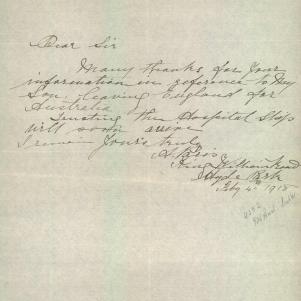 Dear Sir
Many thanks for your
information in reference to My
Son leaving England for
Australia
Trusting the Hospital Ship
will soon arrive
I remain Yours truly
King William Road
Hyde Park
Feby 4th 1918